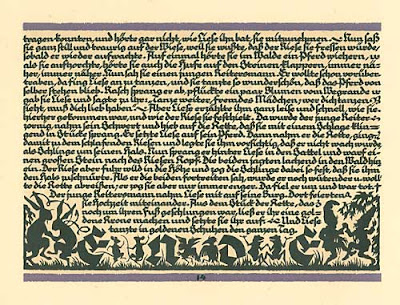 tragen konnten, und hörte gar nicht, wie Liese ihn bat, sie mitzunehmen. Nun saß
sie ganz still und traurig auf der Wiese, weil sie wußte, daß der Riese sie fressen würde,
sobald er wieder aufwachte. Auf einmal hörte sie im Walde ein Pferd wiehern, und
als sie aufhorchte, hörte sie auch die Hufe auf den Steinen klappern, immer nä-
her, immer näher. Nun sah sie einen jungen Reitersmann. Er wollte schon vorüber-
traben, da fing Liese an zu tanzen, und sie tanzte so wunderschön, daß das Pferd von
selber stehen blieb. Rasch sprang er ab, pflückte ein paar Blumen vom Wegrande und
gab sie Liese und sagte zu ihr: „Tanze weiter, fremdes Mädchen, wer dich tanzen
sieht, muß dich lieb haben.“ Aber Liese erzählte ihm ganz leise und schnell, wie sie
hierher gekommen war, und wie der Riese sie festhielt. Da wurde der junge Reiter
zornig, nahm sein Schwert und hieb auf die Kette, daß sie mit einem Schlage klirr-
end in Stücke sprang. Er setzte Liese auf sein Pferd. Dann nahm er die Kette, ging
damit zu dem schlafenden Riesen und legte sie ihm vorsichtig, daß er nicht erwachte,
als Schlinge um seinen Hals. Nun sprang er hinter Liese in den Sattel und warf ei-
nen großen Stein nach des Riesen Kopf. Die beiden jagten lachend in den Wald hin-
ein. Der Riese aber fuhr wild in die Höhe und zog die Schlinge dabei so fest, daß sie ihm
den Hals zuschnürte. Als er die beiden fortreiten sah, wurde er noch wütender und wollte
die Kette abreißen, er zog sie aber nur immer enger. Da fiel er um und war tot.
Der junge Reitersmann nahm Liese mit auf seine Burg. Dort feierten
sie Hochzeit miteinander. Aus dem Stück der Kette, das
noch um ihren Fuß geschlungen war, ließ er ihr eine gol-
dene Krone machen und setzte sie ihr auf. Und Liese
tanzte in goldenen Schuhen den ganzen Tag.
14